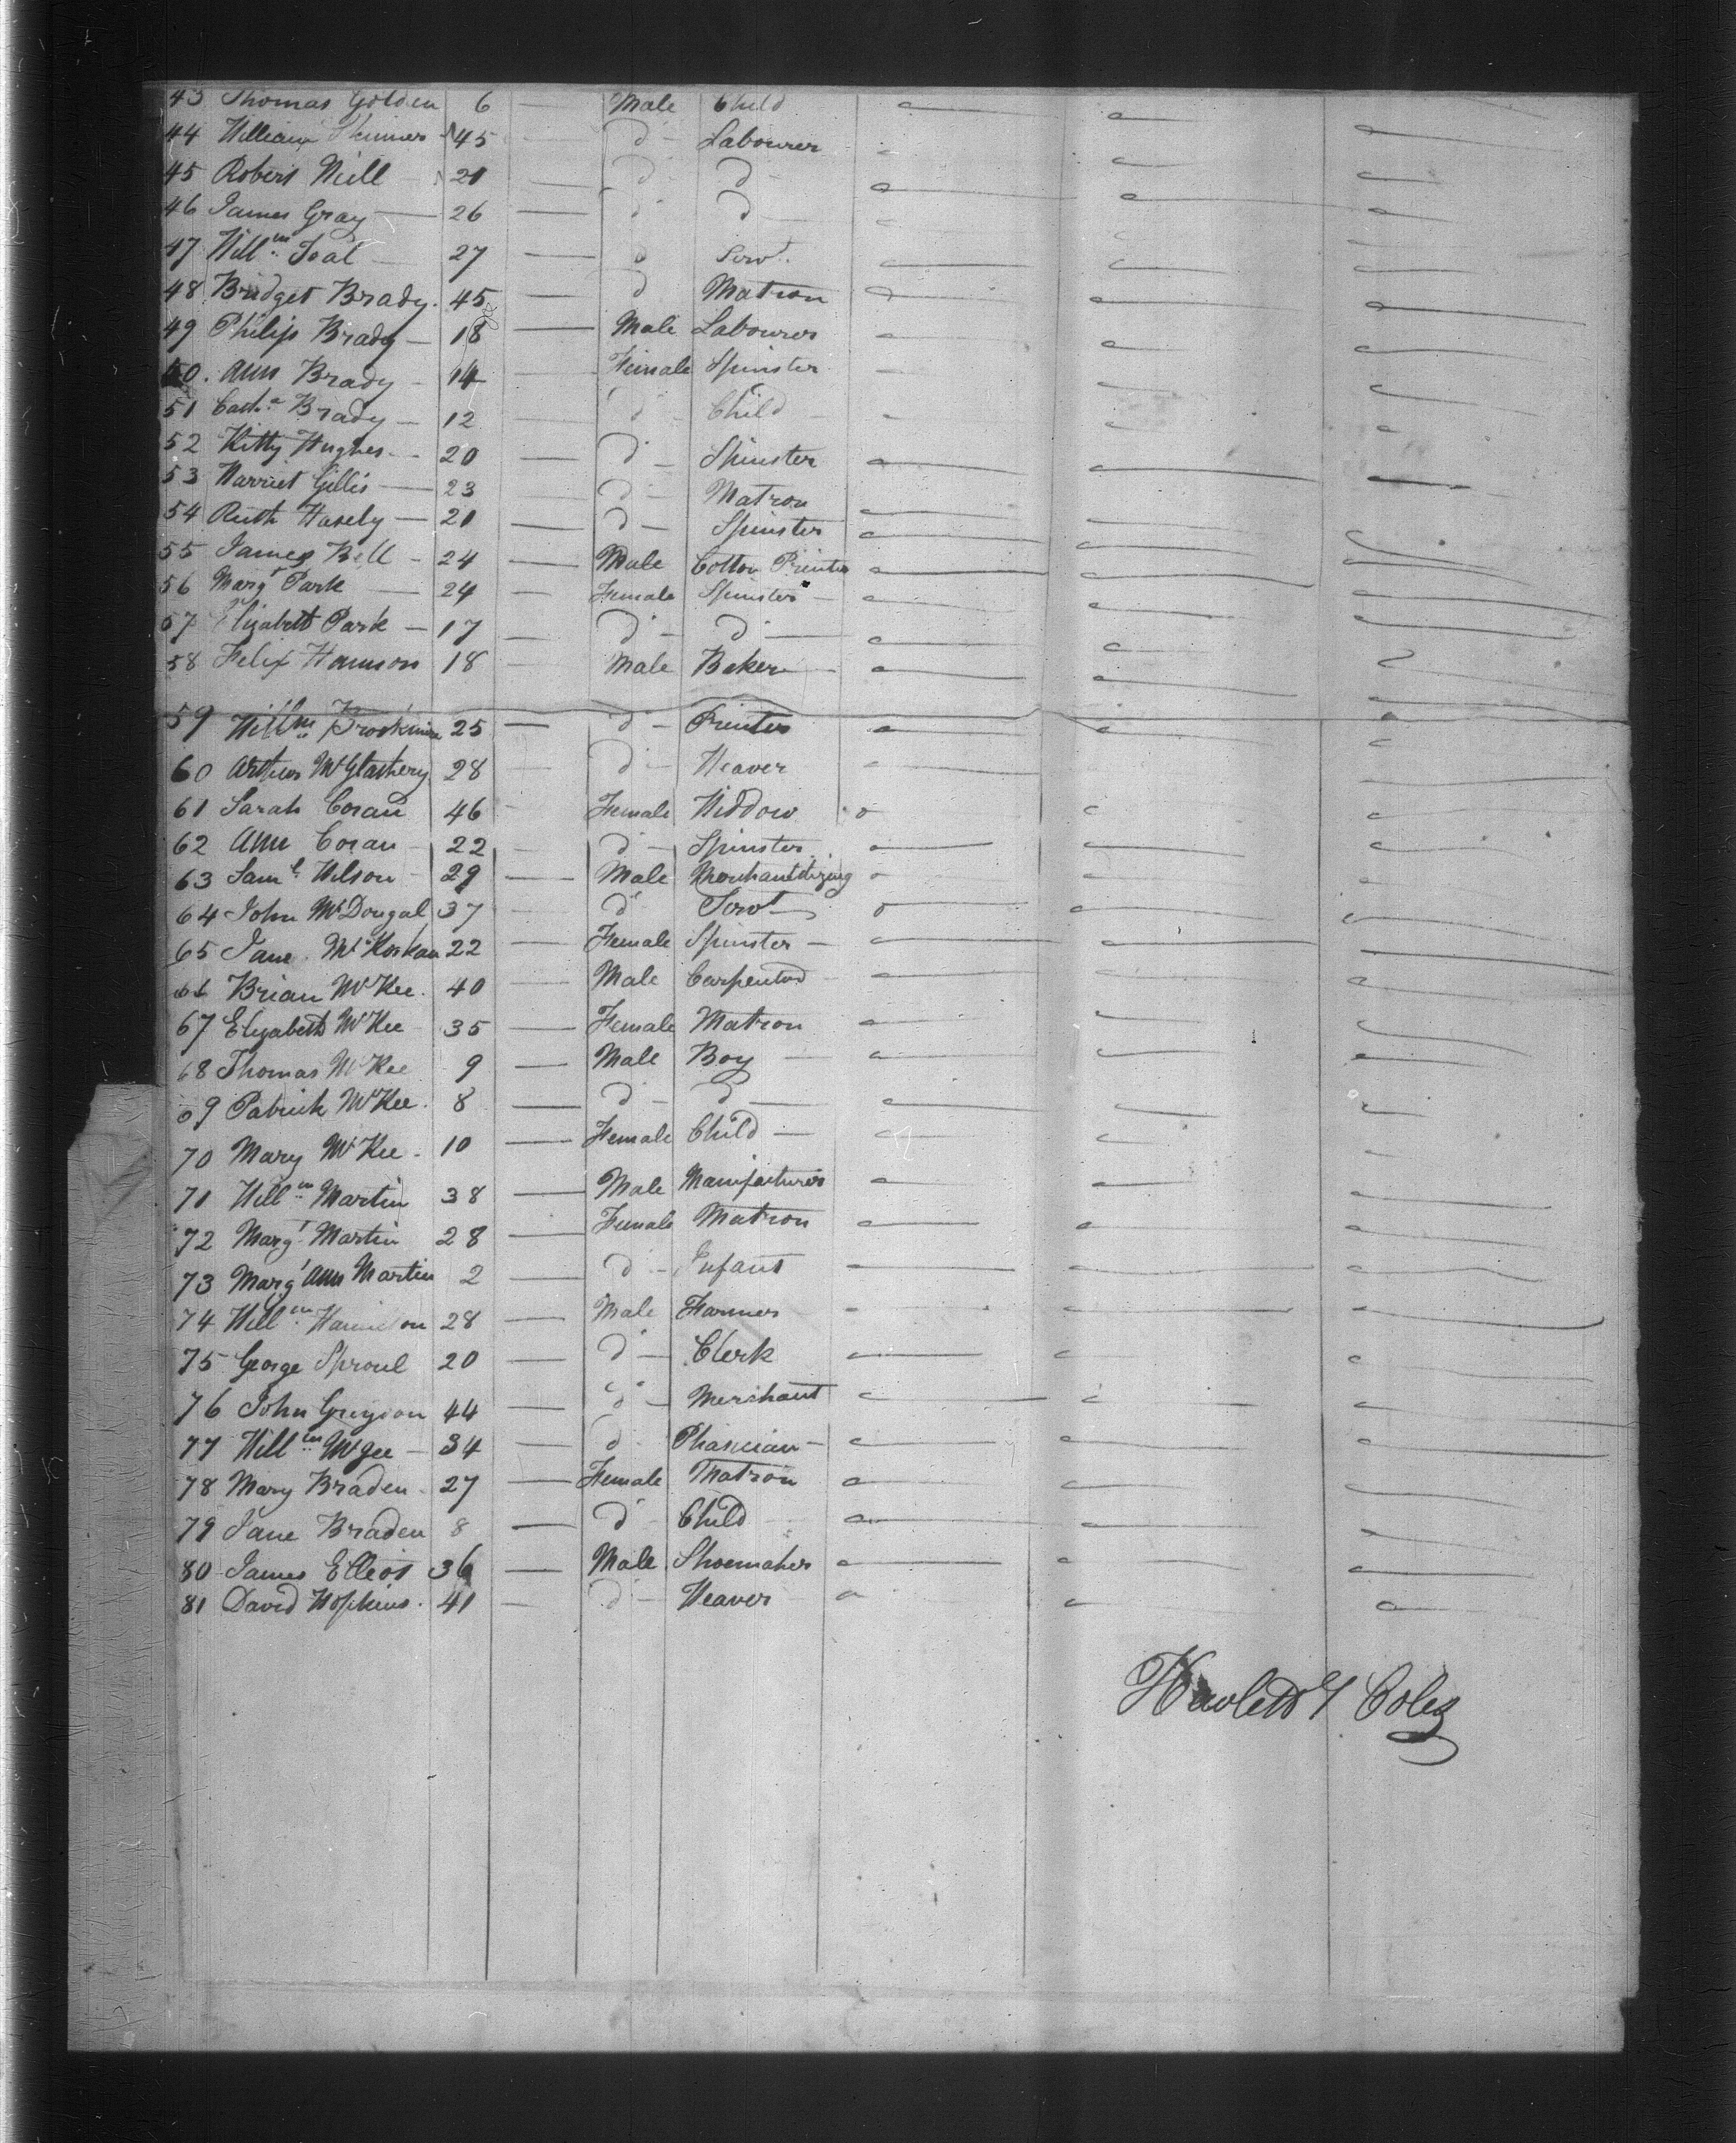 43 Thomas Golden 6 — Male Child
44 William Skinner 45 — do Labourer
45 Robert Neill 21 — do do
46 James Gray — 26 — do do
47 Willm Teal — 27 — do Servt.
48 Bridget Brady. 45 — do Matron
49 Philip Brady — 18 — Male Labourer
50. Ann Brady — 14 — Female Spinster
51 Cathe Brady — 12 do Child
52 Kitty Hughes — 20 — do Spinster
53 Harriet Gillis — 23 do Matron
54 Ruth Hasely — 21 — do Spinster
55 James Bell — 24 — Male Cotton Printer
56 Margt Park — 24 — Female Spinster —
57 Elizabeth Park — 17 — do do —
58 Felix Hannon 18 — Male Baker
59 Willm Brookmire 25 — do Printer
60 Arthur McGlathery 28 — do Weaver
61 Sarah Coran 46 - Female Widdow
62 Ann Coran 22 — do Spinster
63 Saml Wilson 29 — Male
64 John McDougal 37 — do Servt
65 Jane 22 — Female Spinster —
66 Brian McKee. 40 — Male
67 Elizabeth McKee 35 — Female Matron
68 Thomas McKee 9 — Male Boy —
69 Patrick McKee. 8 — do do —
70 Mary McKee. 10 — Female Child —
71 Willm Martin 38 — Male
72 Margt Martin 28 — Female Matron
73 Margt Ann Martin 2 — do Infant
74 Willm Hamilton 28 — Male Farmer
75 George Sproul 20 — do Clerk
76 John 44 — do Merchant
77 Willm McGee — 34 — do
78 Mary Braden. 27 — Female Matron
79 Jane Braden 8 — do Child
80 James Elliot 36 — Male Shoemaker
81 David Hopkins. 41 — do Weaver
Coles